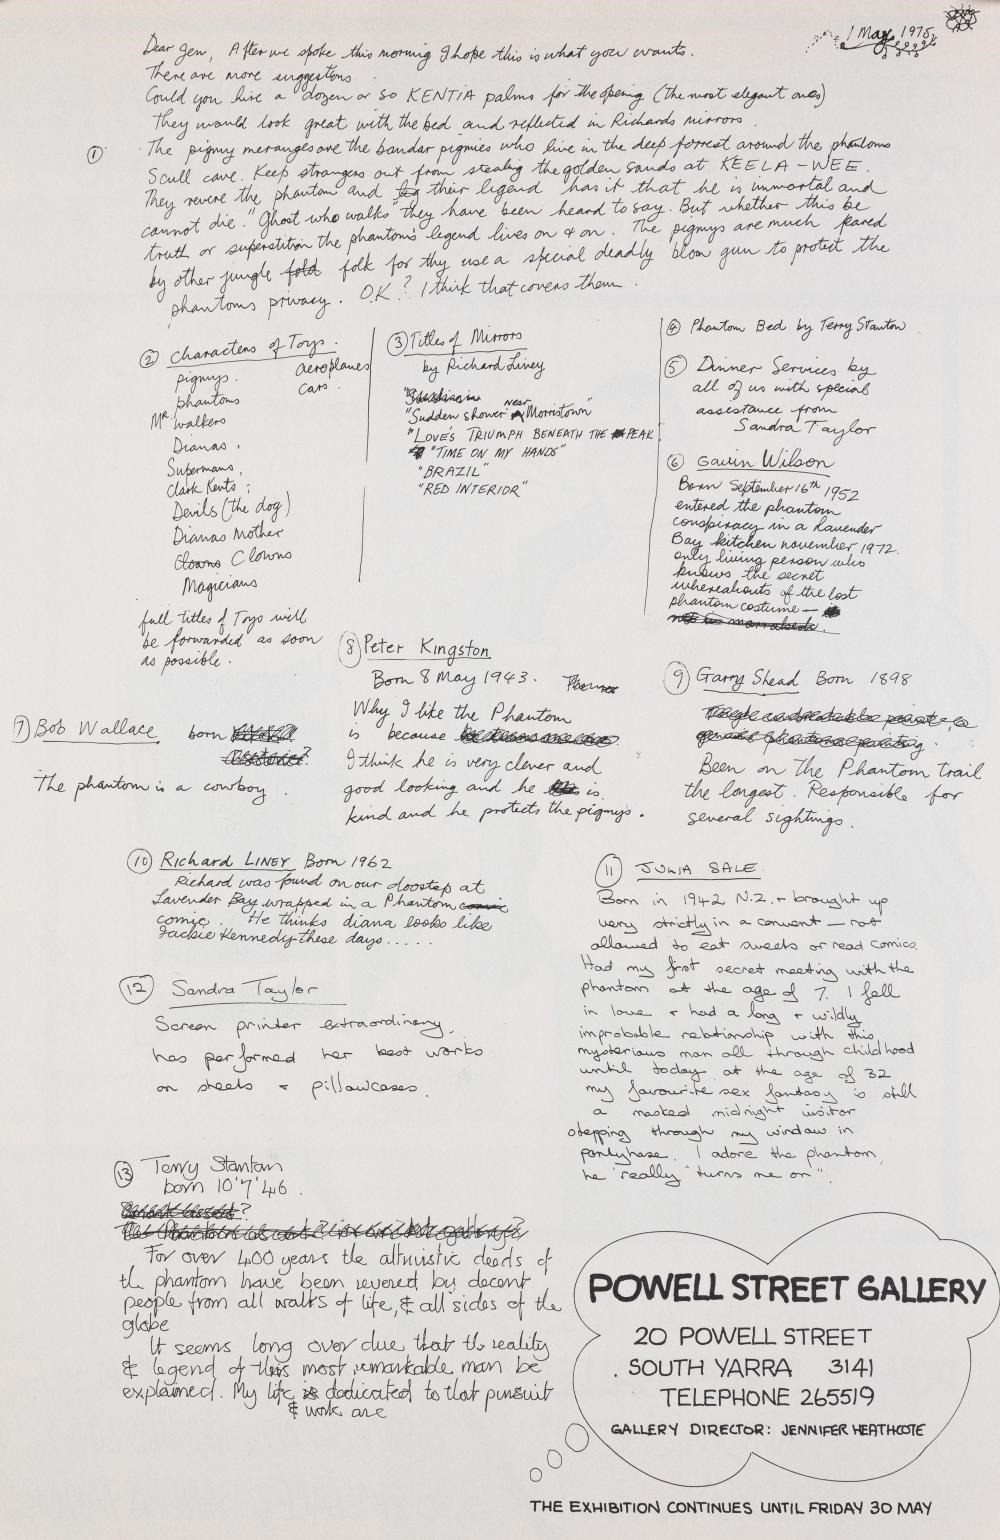 1 May 1975
Dear Jen, After we spoke this morning I hope this is what you wants.
There are more suggestons
Could you hire a dozen or so KENTIA palms for the opening (the most elegant ones)
They would look great with the bed and reflected in Richards mirrors.
① The pigmy meranges are the bandar pigmies who live in the deep forrest around the phantoms
Scull cave. Keep strangers out from stealing the golden sands at KEELA-WEE.
They revere the phantom and leg their legend has it that he is immortal and
cannot die. "Ghost who walks" they have been heard to say. But whether this be
truth or superstition the phantom's legend lives on & on. The pigmys are much feared
by other jungle fold folk for thy use a special deadly blow gun to protect the
phantoms privacy. O.K? I think that covers them.
② Characters of Toys.
pigmys. aeroplanes
phantoms cars.
Mr walkers
Dianas.
Supermans,
Clark Kents;
Devils (the dog)
Dianas Mother
Clowns Clowns
Magicians
full titles of Toys will
be forwarded as soon
as possible.
③ Titles of Mirrors
by Richard Liney
"Sudden shower near Morristown"
"LOVE'S TRIUMPH BENEATH THE PEAK"
"TIME ON MY HANDS"
"BRAZIL"
"RED INTERIOR"
④ Phantom Bed by Terry Stanton
⑤ Dinner Services by
all of us with special
assistance from
Sandra Taylor
⑥ Gavin Wilson
Born September 16th 1952
entered the phantom
conspiracy in a Lavender
Bay kitchen november 1972.
only living person who
knows the secret
whereabouts of the lost
phantom costume —
⑦ Bob Wallace born
The phantom is a cowboy.
⑧ Peter Kingston
Born 8 May 1943.
Why I like the Phantom
is because
I think he is very clever and
good looking and he is
kind and he protects the pigmys.
⑨ Garry Shead Born 1898
Been on The Phantom trail
the longest. Responsible for
several sightings.
⑩ Richard LINEY Born 1962
Richard was found on our doostep at
Lavender Bay wrapped in a Phantom comic
comic. He thinks diana looks like
Jackie Kennedy these days.....
⑪ JULIA SALE.
Born in 1942 N.Z. + brought up
very strictly in a convent — not
allowed to eat sweets or read comics.
Had my first secret meeting with the
phantom at the age of 7. I fell
in love + had a long + wildly
improbable relationship with this
mysterious man all through childhood
until today at the age of 32
my favourite sex fantasy is still
a masked midnight visitor
stepping through my window in
pantyhose. I adore the phantom,
he "really" turns me on".
⑫ Sandra Taylor
Screen printer extraordinary.
has performed her best works
on sheets + pillowcases.
⑬ Terry Stanton
born 10'7'46.
For over 400 years the altruistic deeds of
the phantom have been revered by decent
people from all walks of life, & all sides of the
globe
It seems long over due that the reality
& legend of this most remarkable man be
explained. My life is dedicated to that pursuit
& work are
POWELL STREET GALLERY
20 POWELL STREET
SOUTH YARRA 3141
TELEPHONE 265519
GALLERY DIRECTOR: JENNIFER HEATHCOTE
THE EXHIBITION CONTINUES UNTIL FRIDAY 30 MAY